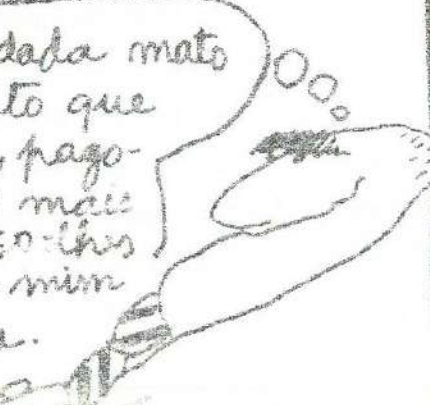 dada mato
to que
pago-
mais
lhes
mim